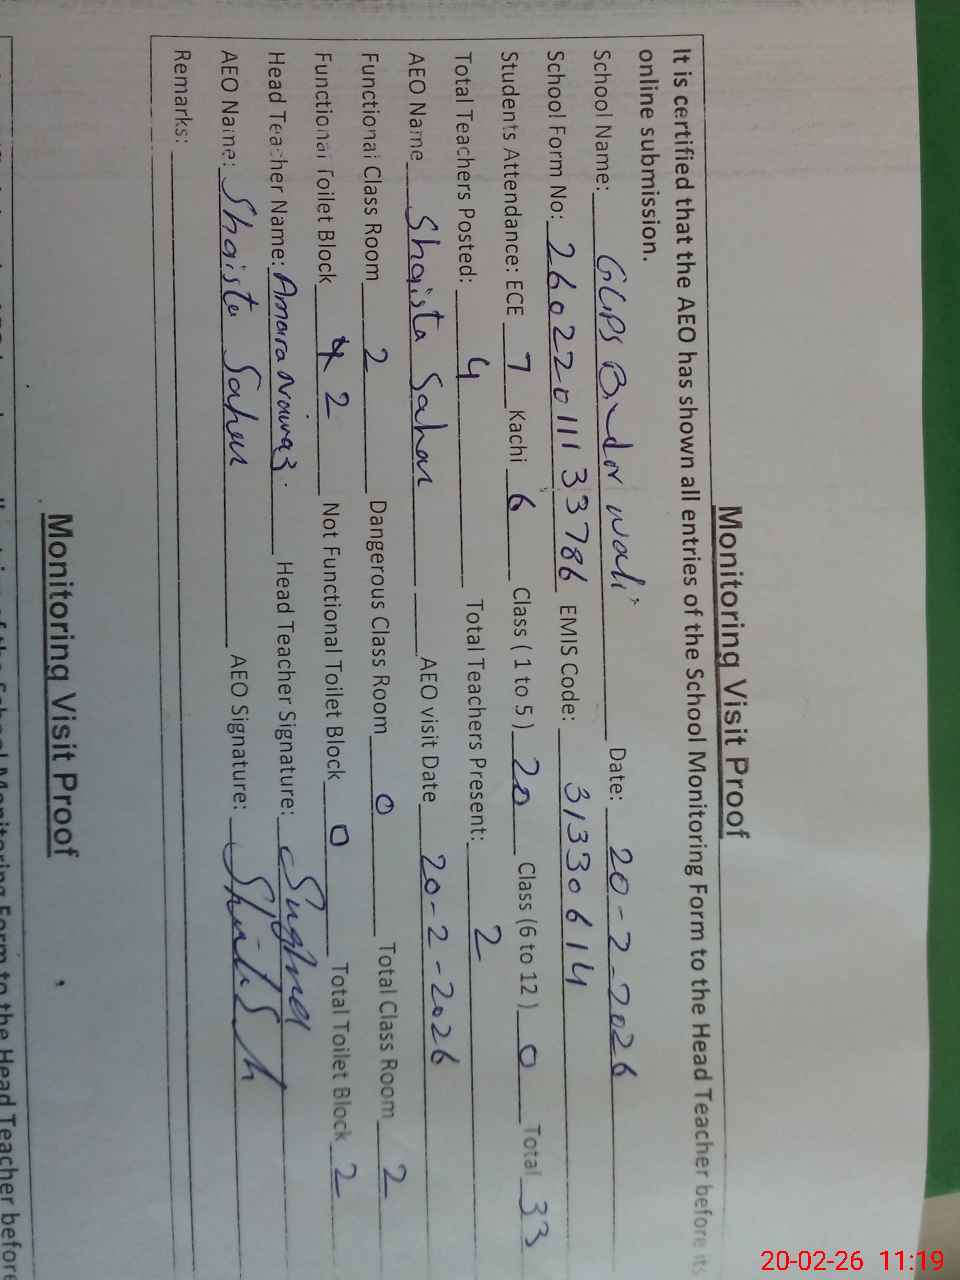 Monitoring Visit Proof
It is certified that the AEO has shown all entries of the School Monitoring Form to the Head Teacher before its
online submission.
School Name: GGPS Bindor wali Date: 20-2-2026
School Form No: 26022011133786 EMIS Code: 31330614
Students Attendance: ECE 7 Kachi 6 Class ( 1 to 5 ) 20 Class (6 to 12 ) 0 Total 33
Total Teachers Posted: 4 Total Teachers Present: 2
AEO Name Shaista Sahar AEO visit Date 20-2-2026
Functional Class Room 2 Dangerous Class Room 0 Total Class Room 2
Functional Toilet Block 2 Not Functional Toilet Block 0 Total Toilet Block 2
Head Teacher Name: Amara Nawaz Head Teacher Signature:
AEO Name: Shaista Sahar AEO Signature:
Remarks:
Monitoring Visit Proof
of the School Monitoring Form to the Head Teacher before
20-02-26 11:19